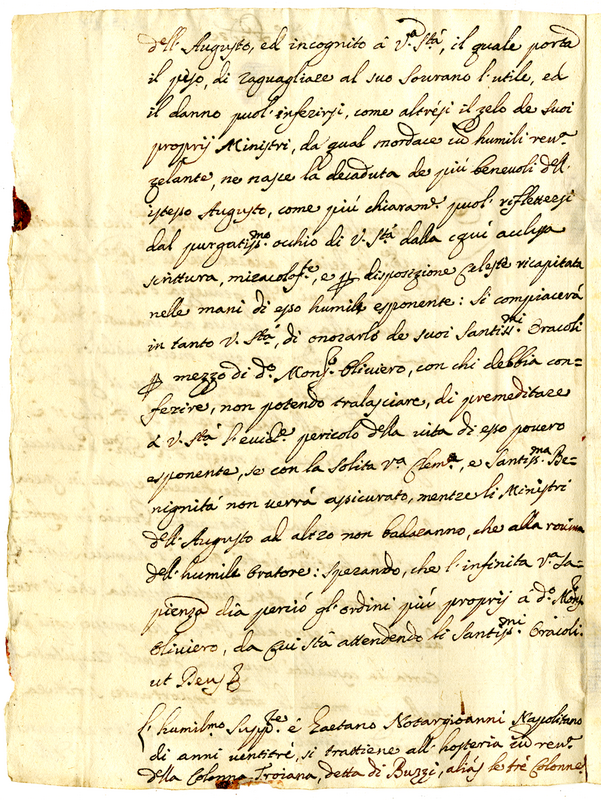 dell'Augusto, ed incognito â V.ª Stá, il quale porta
il peso, di raguagliare al suo Sovrano l'utile, ed
il danno puol'inferirsi, come altresi il zelo de suoi
proprij Ministri, da qual mordace umili
zelante, ne nasce la decaduta de piú benevoli dell'
istesso Augusto, come piú chiaram.e puol'riflettersi
dal purgatiss.mo occhio di V. Stá dalla cqui acclusa
scrittura, miracolos.te, e p disposizione Celeste ricapitata
nelle mani di esso humile esponente: Si compiacerá
in tanto V. Stá, di onorarlo de suoi Santiss.mi Oracoli
p mezzo di d.º Mons.r Oliviero, con chi debbia con=
ferire, non potendo tralasciare, di premeditare
a V. Stá l'evid.e pericolo della vita di esso povero
esponente, se con la solita V.ª Clem.ª, e Santiss.ma Be=
nignitá non verrá assicurato, mentre li Ministri
dell'Augusto ad altro non badaranno, che alla rovina
dell'humile Oratore: sperando, che l'infinita V.ª Sa=
pienza dia perció gl'ordini piú proprij a d.º Mons.r
Oliviero, da cui stá attendendo li Santiss.mi Oracoli.
ut Deus
L'humilmo Supp.te é Gaetano Notargioanni Napolitano
di anni ventitré, si trattiene all'hosteria
della Colonna Troiana, detta di Buzzi, alias le tré Colonne